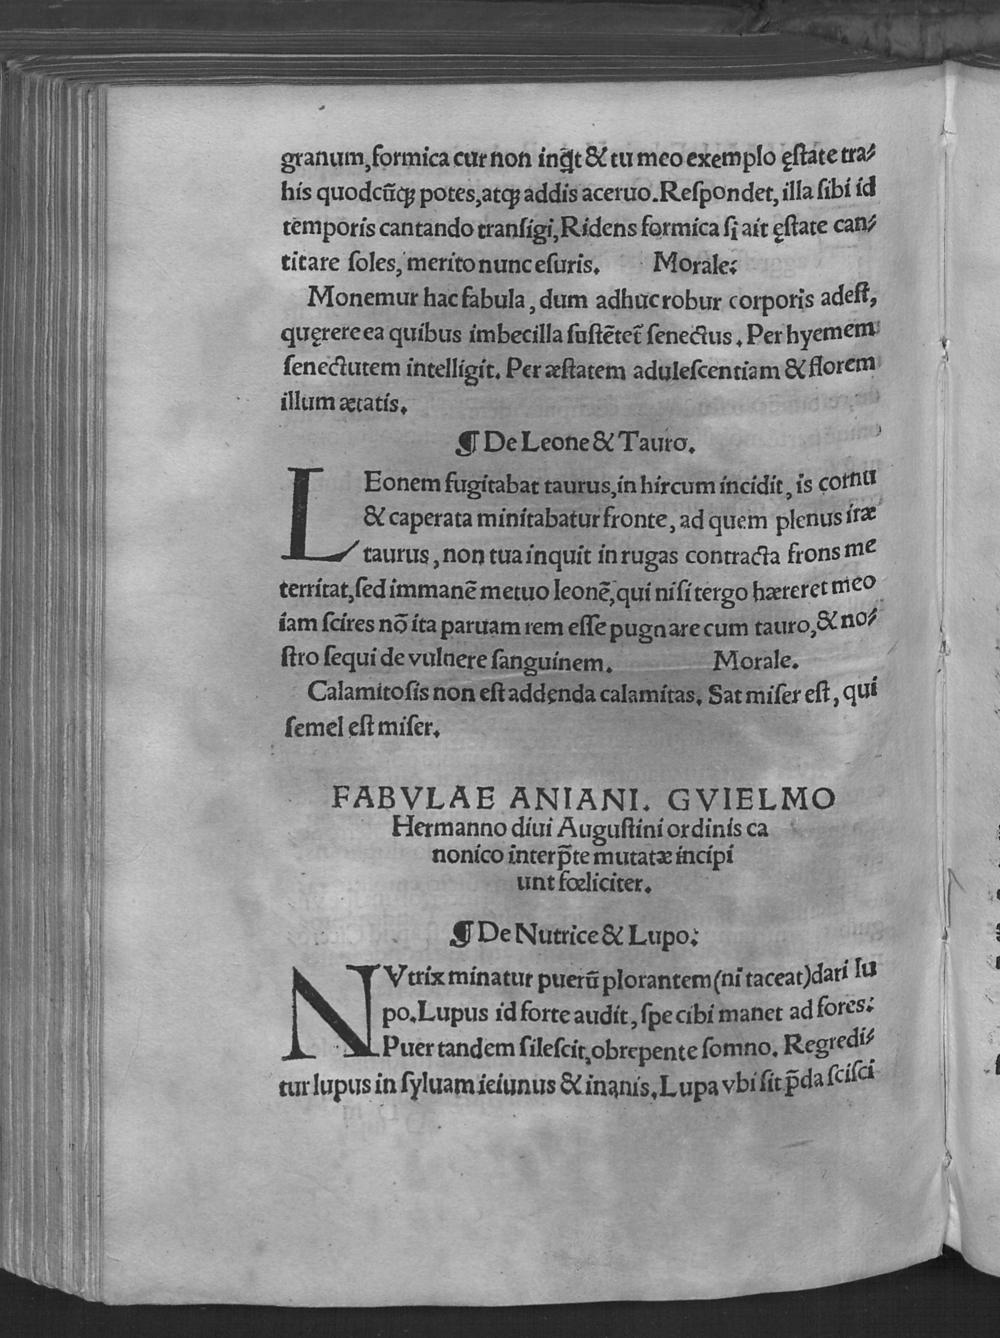 granum,formica cur non inq̃t & tu meo exemplo ęſtate tra⸗
his quodcũq; potes,atq; addis aceruo.Reſpondet, illa ſibi id
temporis cantando tranſigi, Ridens formica ſi ait ęſtate can⸗
titare ſoles, merito nunc eſuris. Morale:
Monemur hac fabula, dum adhuc robur corporis adeſt,
quęrere ea quibus imbecilla ſuſtẽtet̃ ſenectus. Per hyemem
ſenectutem intelligit. Per æſtatem aduleſcentiam & florem
illum ætatis.
¶ De Leone & Tauro.
LEonem fugitabat taurus,in hircum incidit, is cornu
& caperata minitabatur fronte, ad quem plenus iræ
taurus, non tua inquit in rugas contracta frons me
territat,ſed immanẽ metuo leonẽ,qui niſi tergo hæreret meo
iam ſcires nõ ita paruam rem eſſe pugnare cum tauro,& no⸗
ſtro ſequi de vulnere ſanguinem. Morale.
Calamitoſis non eſt addenda calamitas. Sat miſer eſt, qui
ſemel eſt miſer.
FABVLAE ANIANI. GVIELMO
Hermanno diui Auguſtini ordinis ca
nonico interp̃te mutatæ incipi
unt fœliciter.
¶ De Nutrice & Lupo:
NVtrix minatur puerũ plorantem (ni taceat)dari lu
po.Lupus id forte audit, ſpe cibi manet ad fores:
Puer tandem ſileſcit,obrepente ſomno. Regredi⸗
tur lupus in ſyluam ieiunus & inanis.Lupa vbi ſit p̃da ſciſci